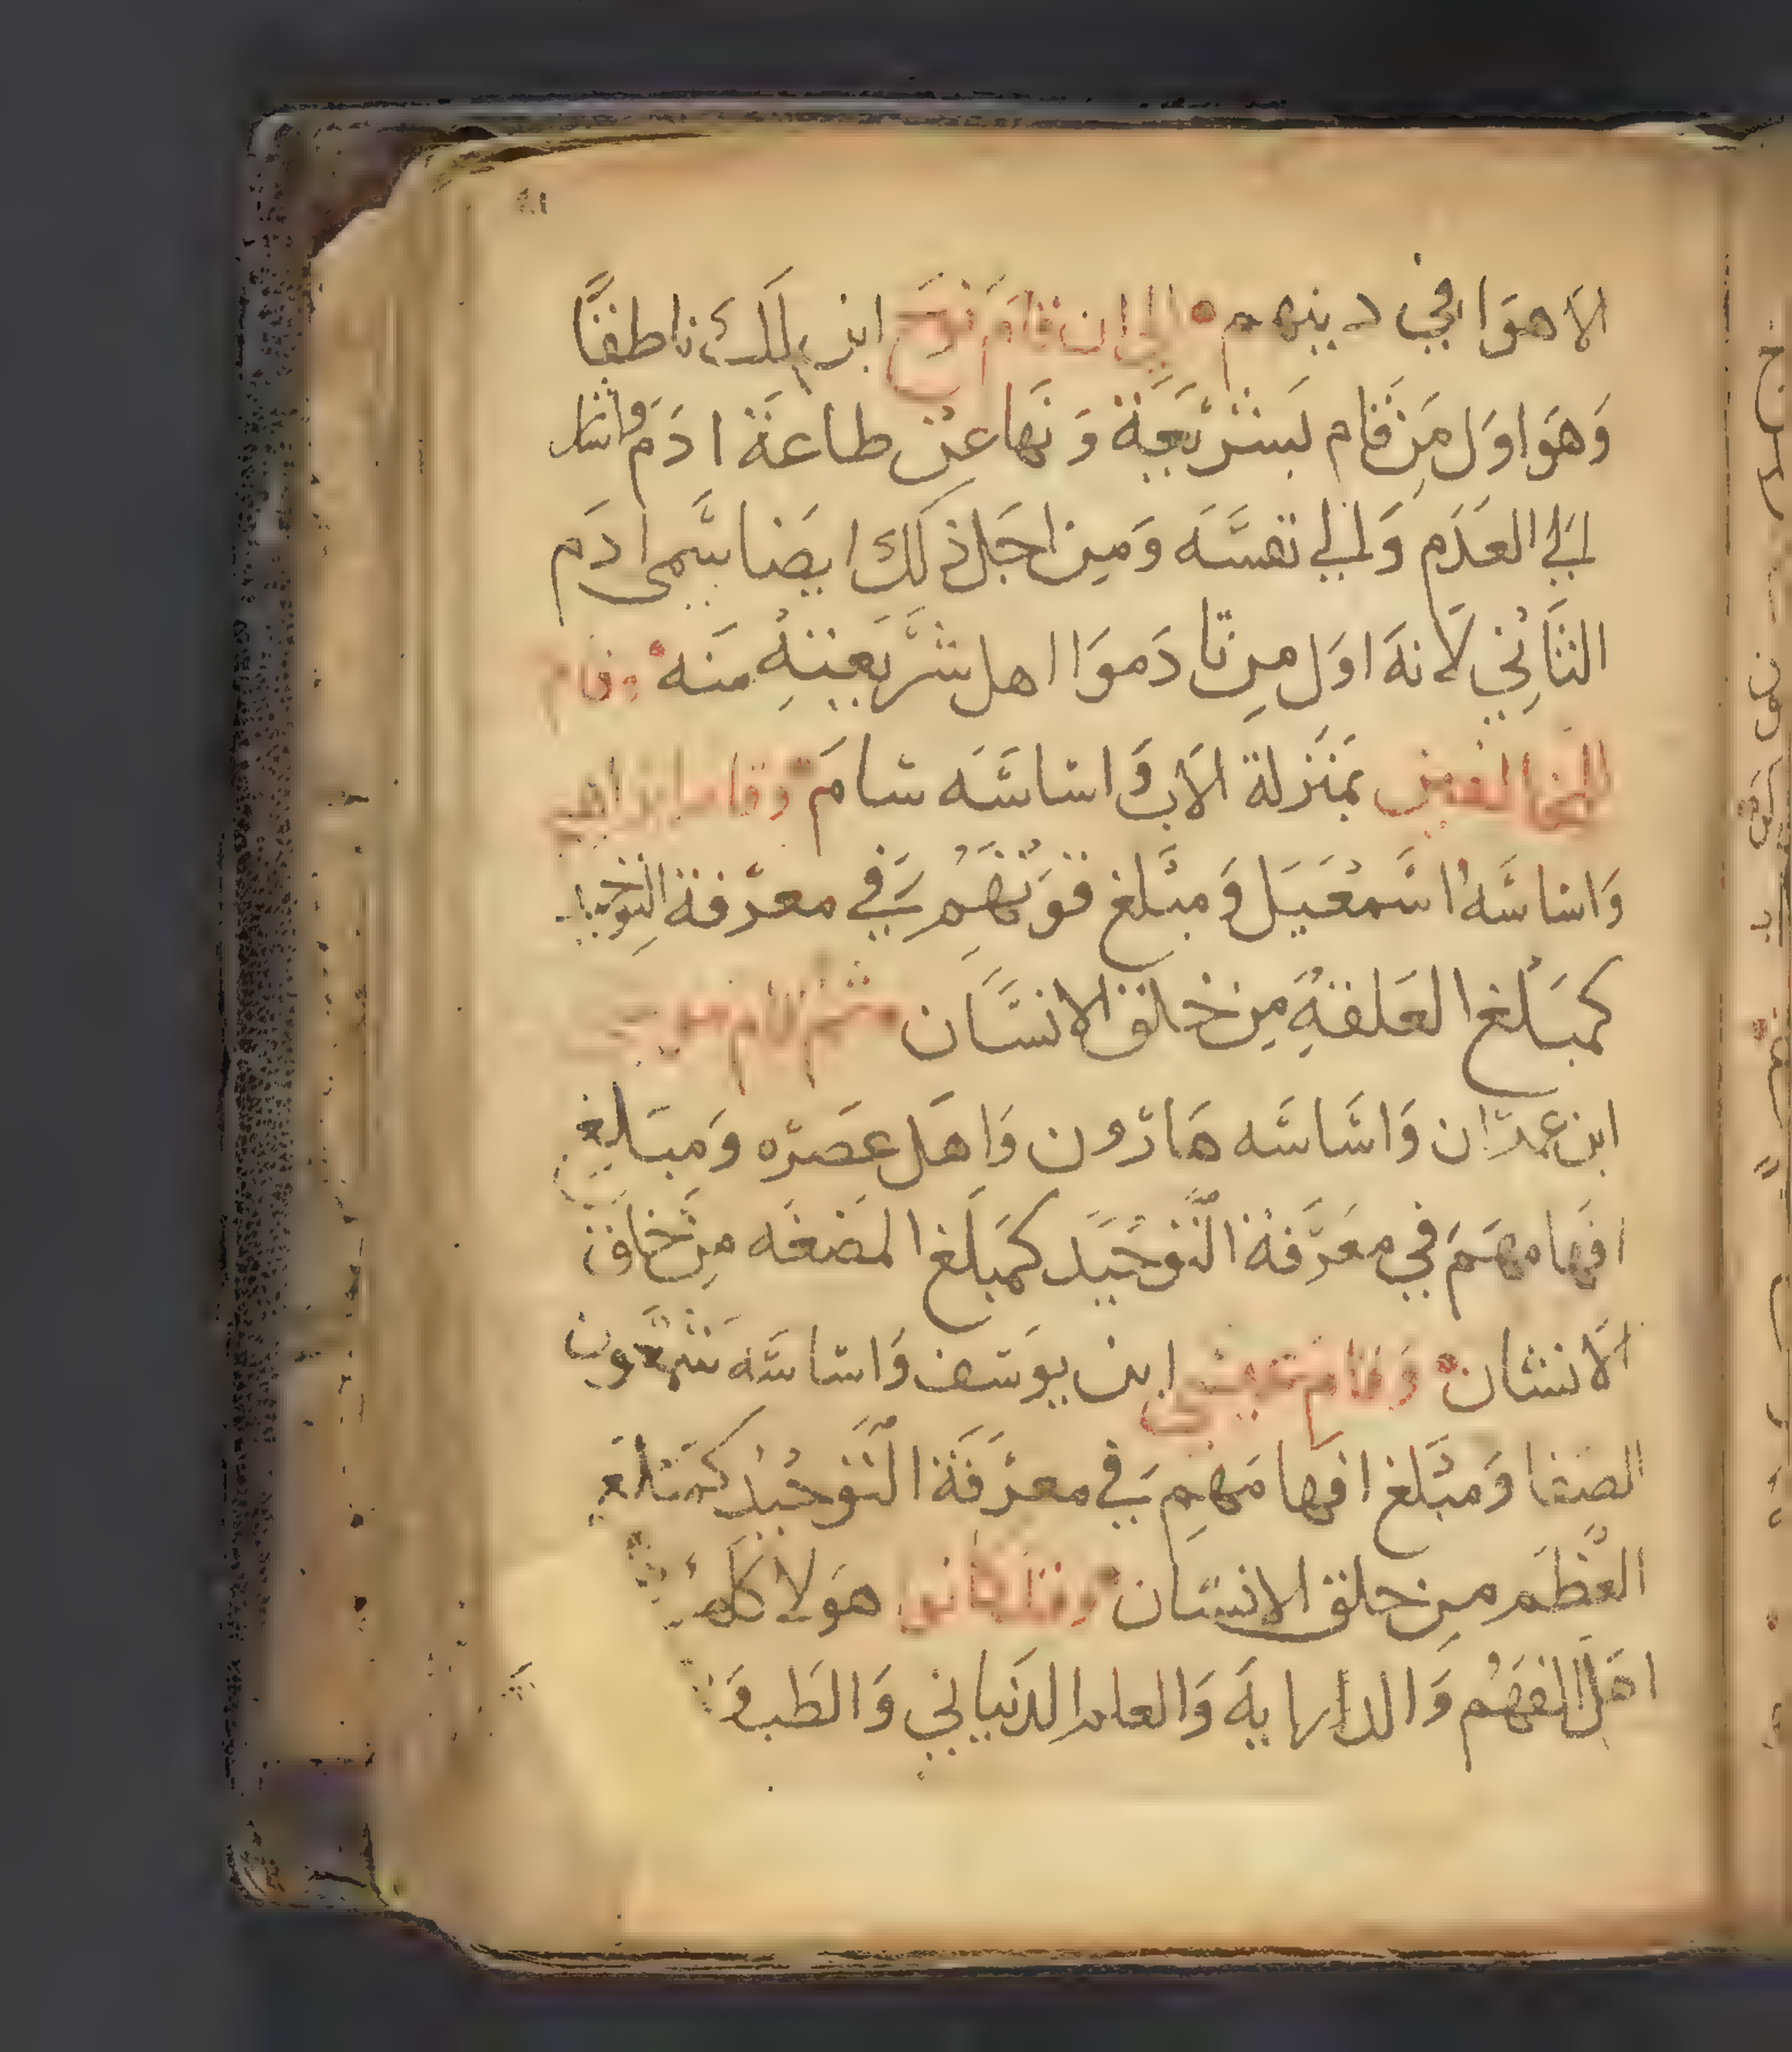 الاهوا في دينهم الي ان قام نوح ابن لمك ناطقًا
وَهوَ اوَل مِن قام بشريعة وَنها عن طاعة ادَم واشار
الي العدَم وَالي نفسَه وَمِن اجَل ذلك ايضا يسَمى ادَم
الثاني لانهَ اوَل مِن نادَموَا اهل شرَيعتهِ منَه وقام
بمنزلة الاب وَاساسَه سَامَ وقام ابراهيم
وَاساسَه اسَمعيَل وَمبَلغ قوَتهَمِ في معرَفة التوحيد
كمبَلغ العَلقةِ مِن خلق الانسَان ثم قام موسي
ابن عمرَان وَاسَاسَه هَارَون وَاهَل عصَرَه وَمبَلغ
افهامهَم في معَرَفة التَوحيَد كمَبلَغ المَضغَه مِن خلق
الانسَان وَقام عيسي ابن يوسَف وَاساسَه شمعون
الصَفا وَمبَلغ افهامَهمِ في معرَفَة التَوحيَد كمبَلغ
العظَم مِن خلق الانسَان وقد كانوا هوَلا كلهم
اهَل الفهَم وَالدارايهَ وَالعلم الدنياني وَالطَب وَ